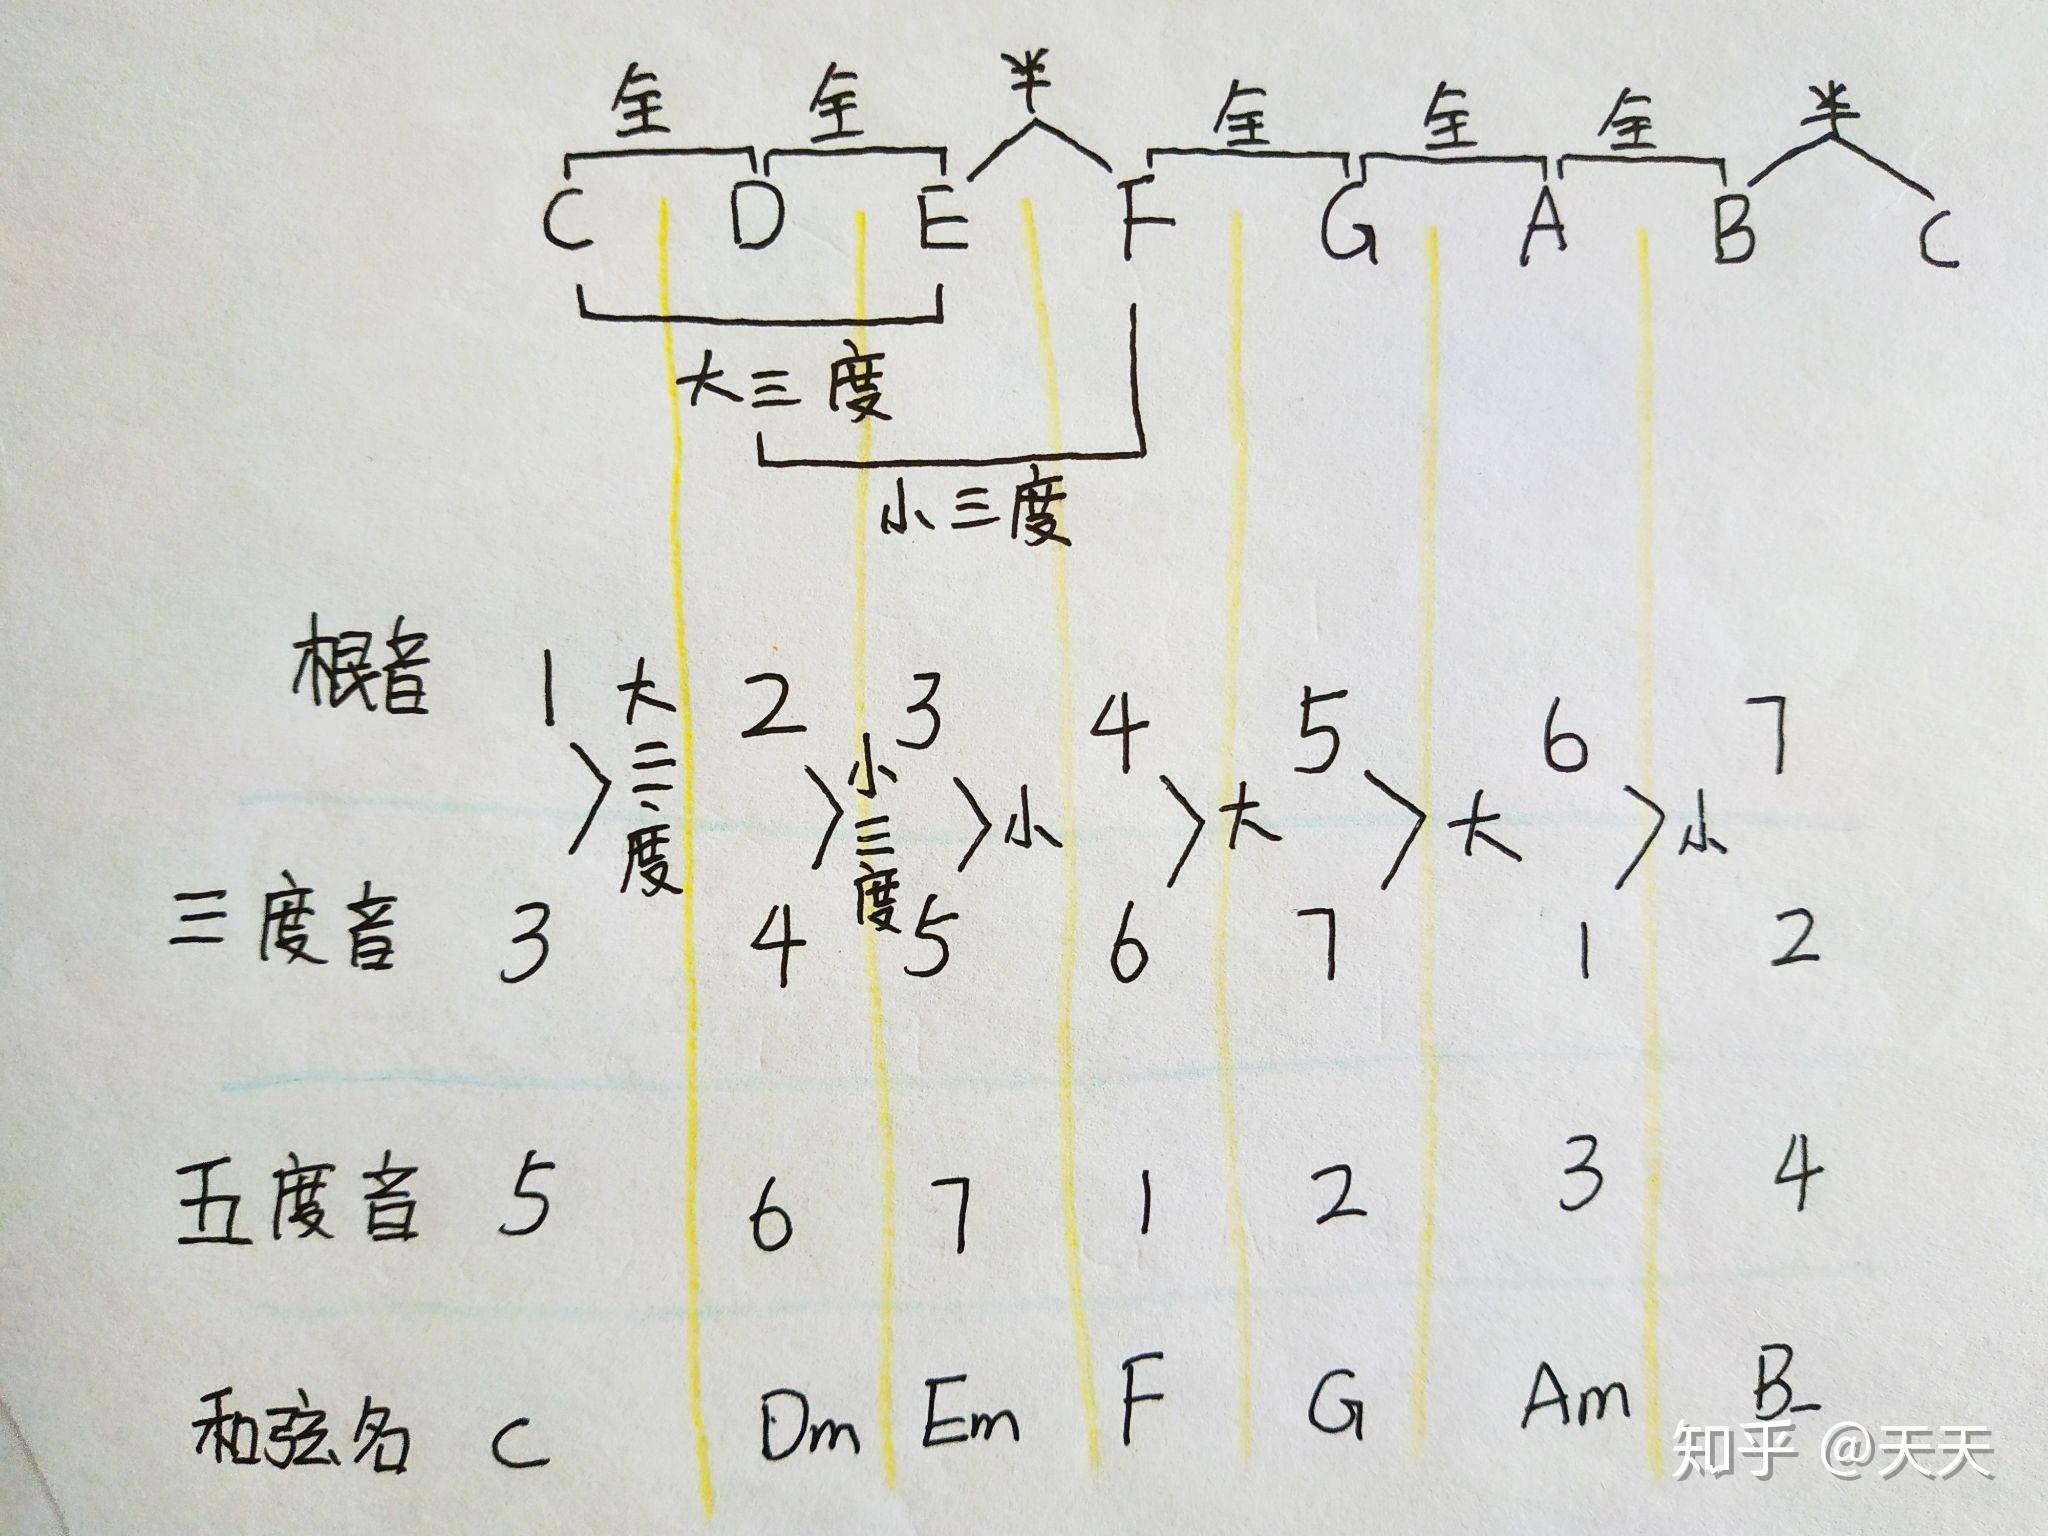 全 全 半 全 全 全 半
C D E F G A B C
大三度
小三度
根音 1 2 3 4 5 6 7
大三度 小三度 小 大 大 小
三度音 3 4 5 6 7 1 2
五度音 5 6 7 1 2 3 4
和弦名 C Dm Em F G Am B-
知乎 @天天